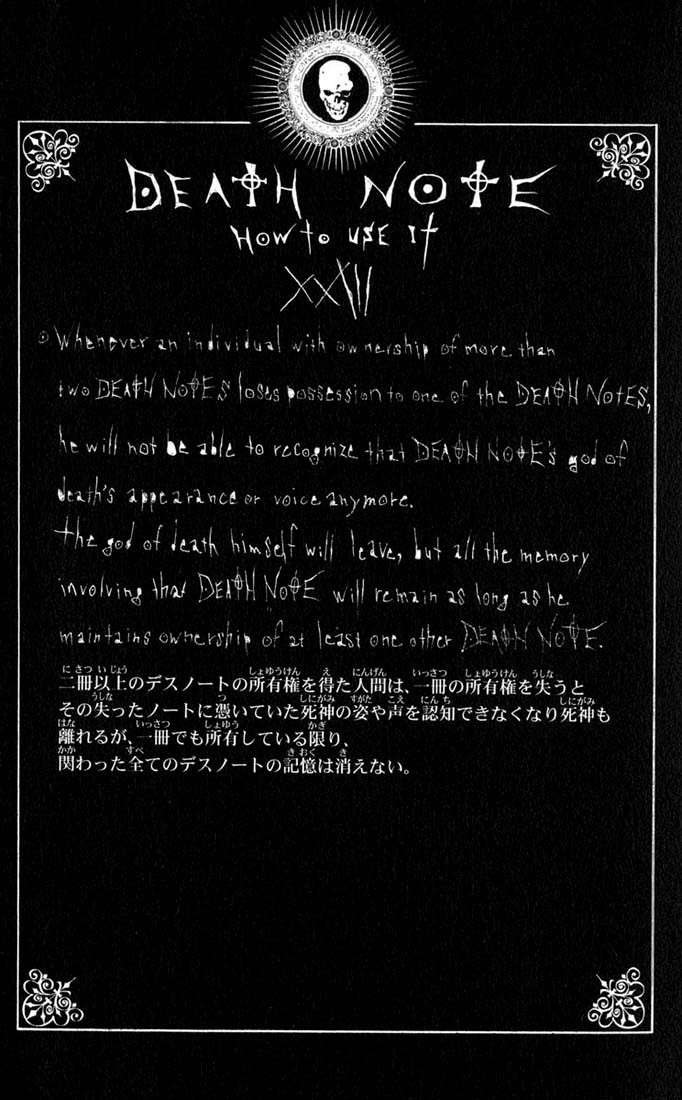 DEATH NOTE
HOW TO USE IT
XXIII
Whenever an individual with ownership of more than
two DEATH NOTES loses possession to one of the DEATH NOTES,
he will not be able to recognize that DEATH NOTE's god of
death's appearance or voice anymore.
The god of death himself will leave, but all the memory
involving that DEATH NOTE will remain as long as he
maintains ownership of at least one other DEATH NOTE.
二冊以上のデスノートの所有権を得た人間は、一冊の所有権を失うと
その失ったノートに憑いていた死神の姿や声を認知できなくなり死神も
離れるが、一冊でも所有している限り、
関わった全てのデスノートの記憶は消えない。